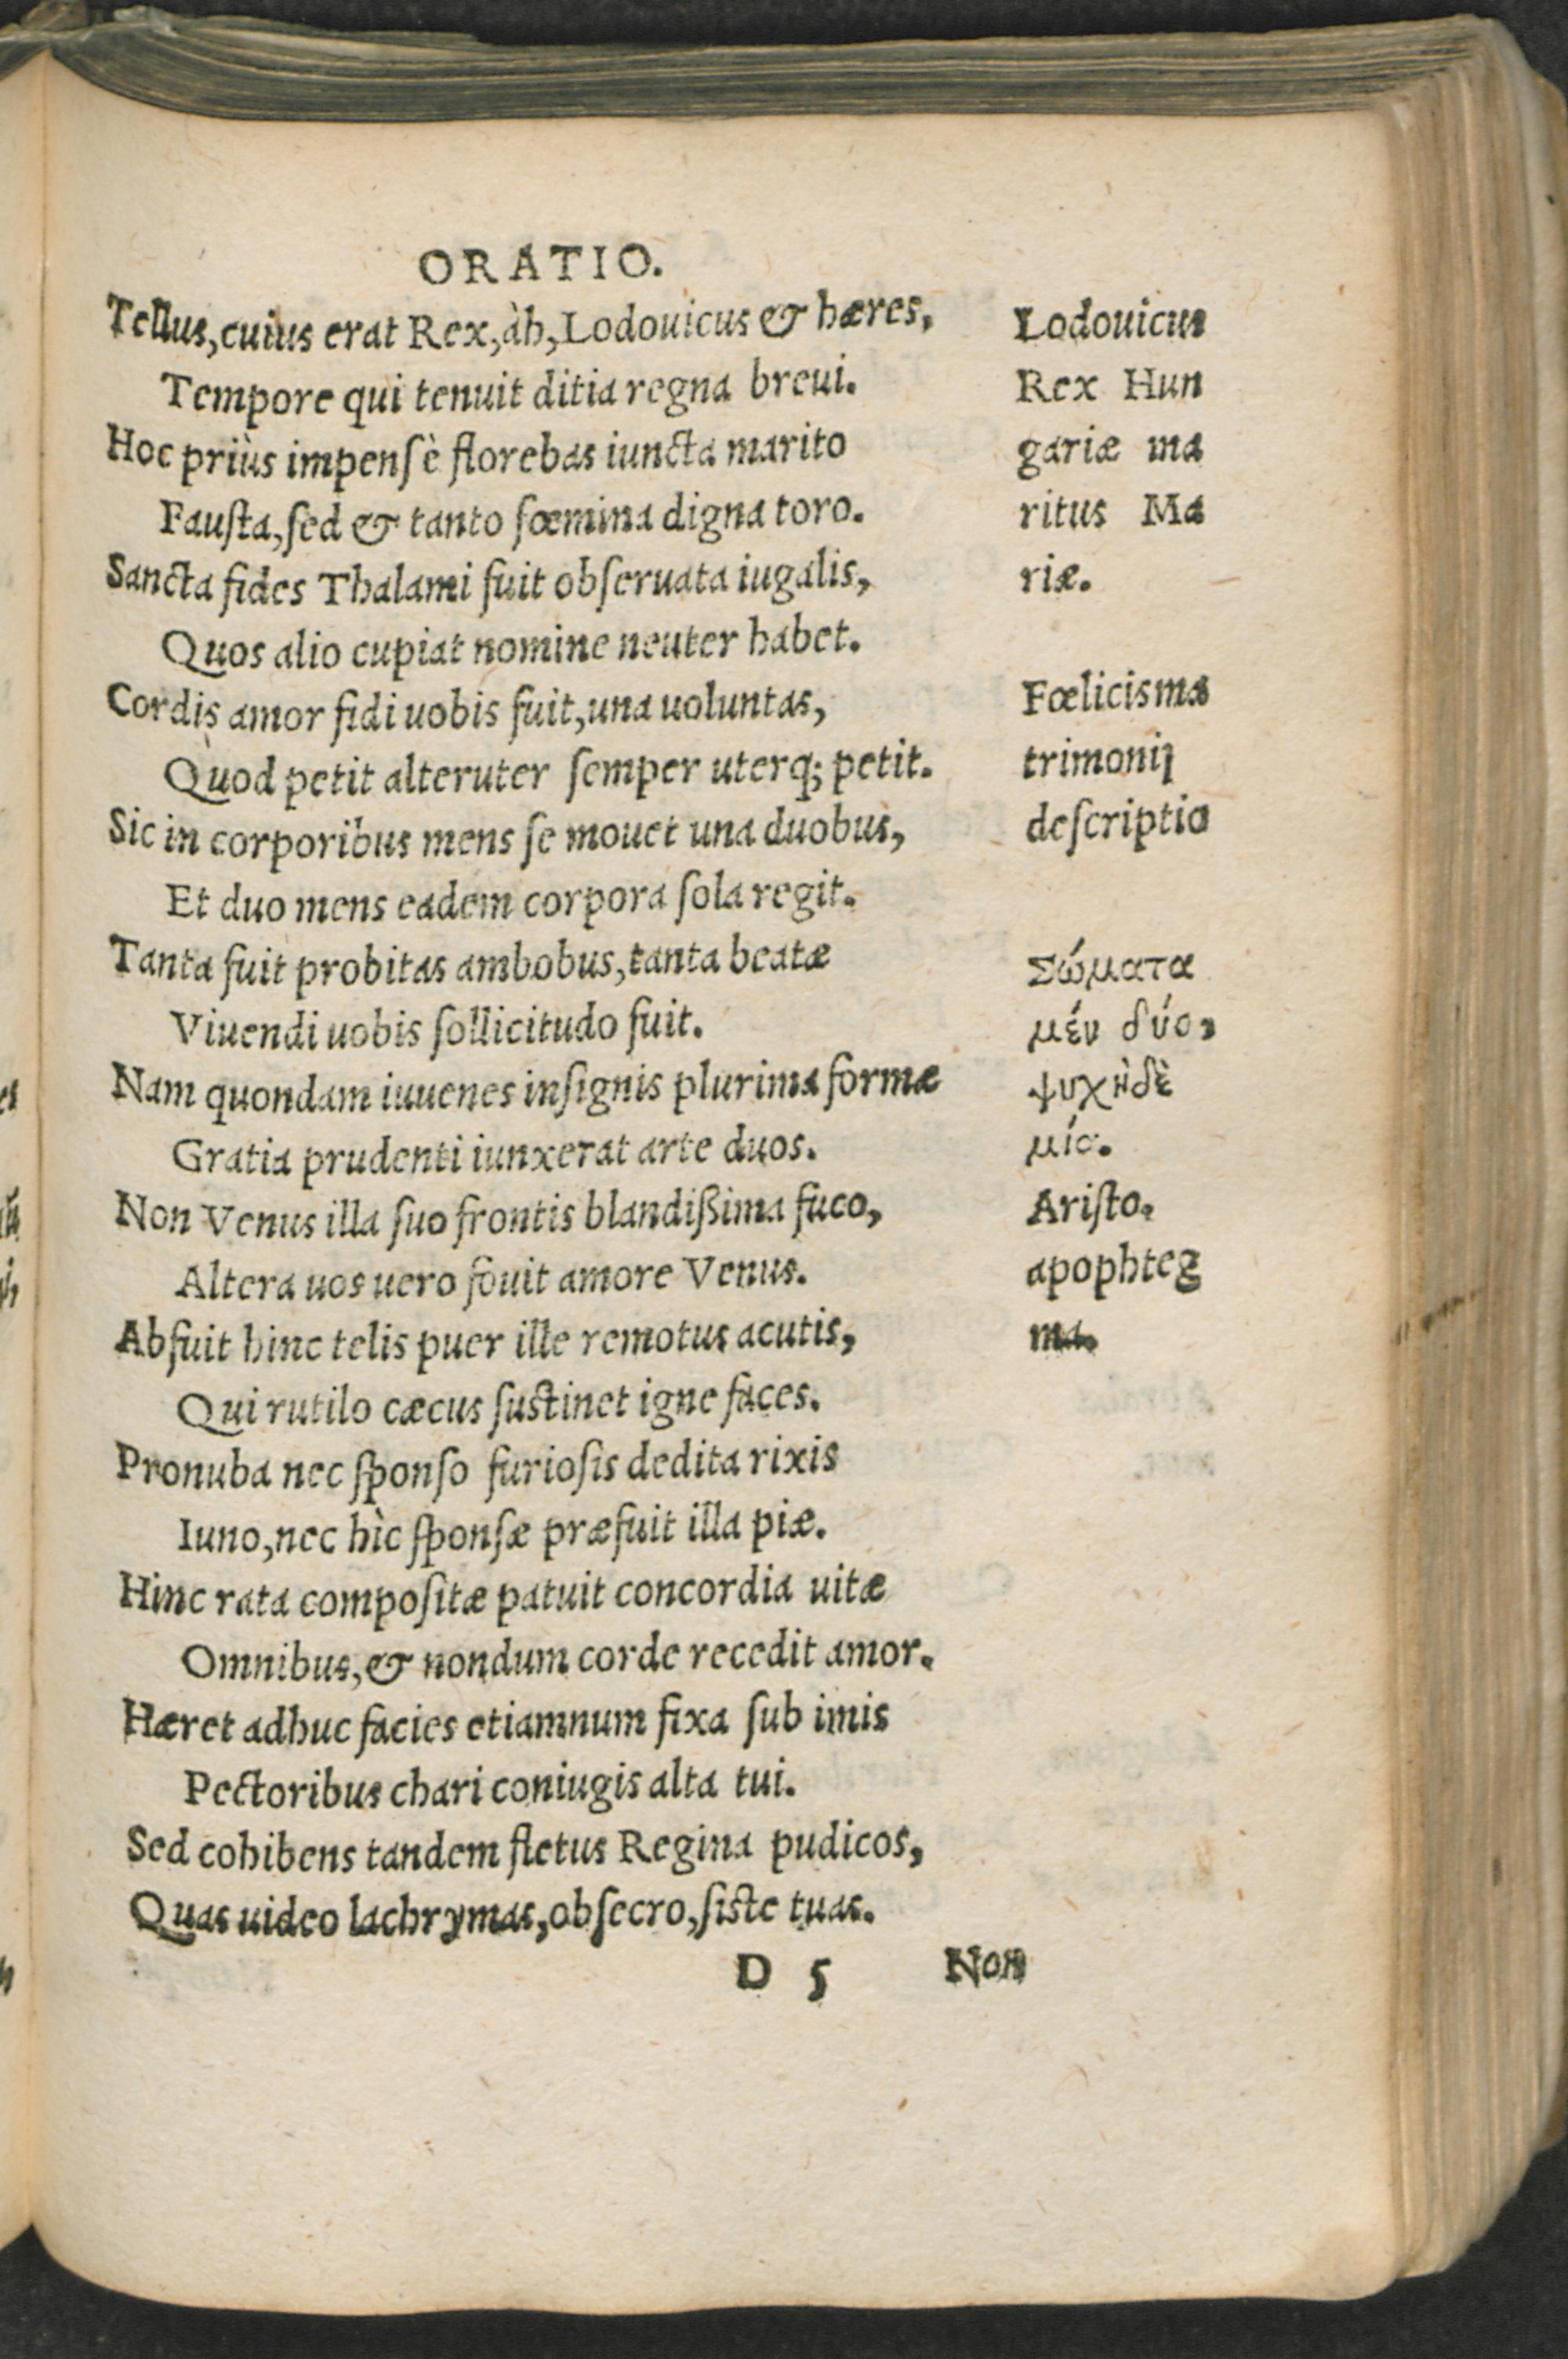 ORATIO.
Tellus, cuius erat Rex, àh, Lodouicus & hæres,
Tempore qui tenuit ditia regna breui.
Hoc priùs impensè florebas iuncta marito
Fausta, sed & tanto fœmina digna toro.
Sancta fides Thalami fuit obseruata iugalis,
Quos alio cupiat nomine neuter habet.
Cordis amor fidi uobis fuit, una uoluntas,
Quod petit alteruter semper uterq; petit.
Sic in corporibus mens se mouet una duobus,
Et duo mens eadem corpora sola regit.
Tanta fuit probitas ambobus, tanta beatæ
Viuendi uobis sollicitudo fuit.
Nam quondam iuuenes insignis plurima formæ
Gratia prudenti iunxerat arte duos.
Non Venus illa suo frontis blandißima fuco,
Altera uos uero fouit amore Venus.
Abfuit hinc telis puer ille remotus acutis,
Qui rutilo cæcus sustinet igne faces.
Pronuba nec sponso furiosis dedita rixis
Iuno, nec hìc sponsæ præfuit illa piæ.
Hinc rata compositæ patuit concordia uitæ
Omnibus, & nondum corde recedit amor.
Hæret adhuc facies etiamnum fixa sub imis
Pectoribus chari coniugis alta tui.
Sed cohibens tandem fletus Regina pudicos,
Quas uideo lachrymas, obsecro, siste tuas.
D 5 Non
Lodouicus
Rex Hun
gariæ ma
ritus Ma
riæ.
Fœlicis ma
trimonij
descriptio
Σώματα
μέν δύο,
ψυχὴ δὲ
μία.
Aristo.
apophteg
ma.